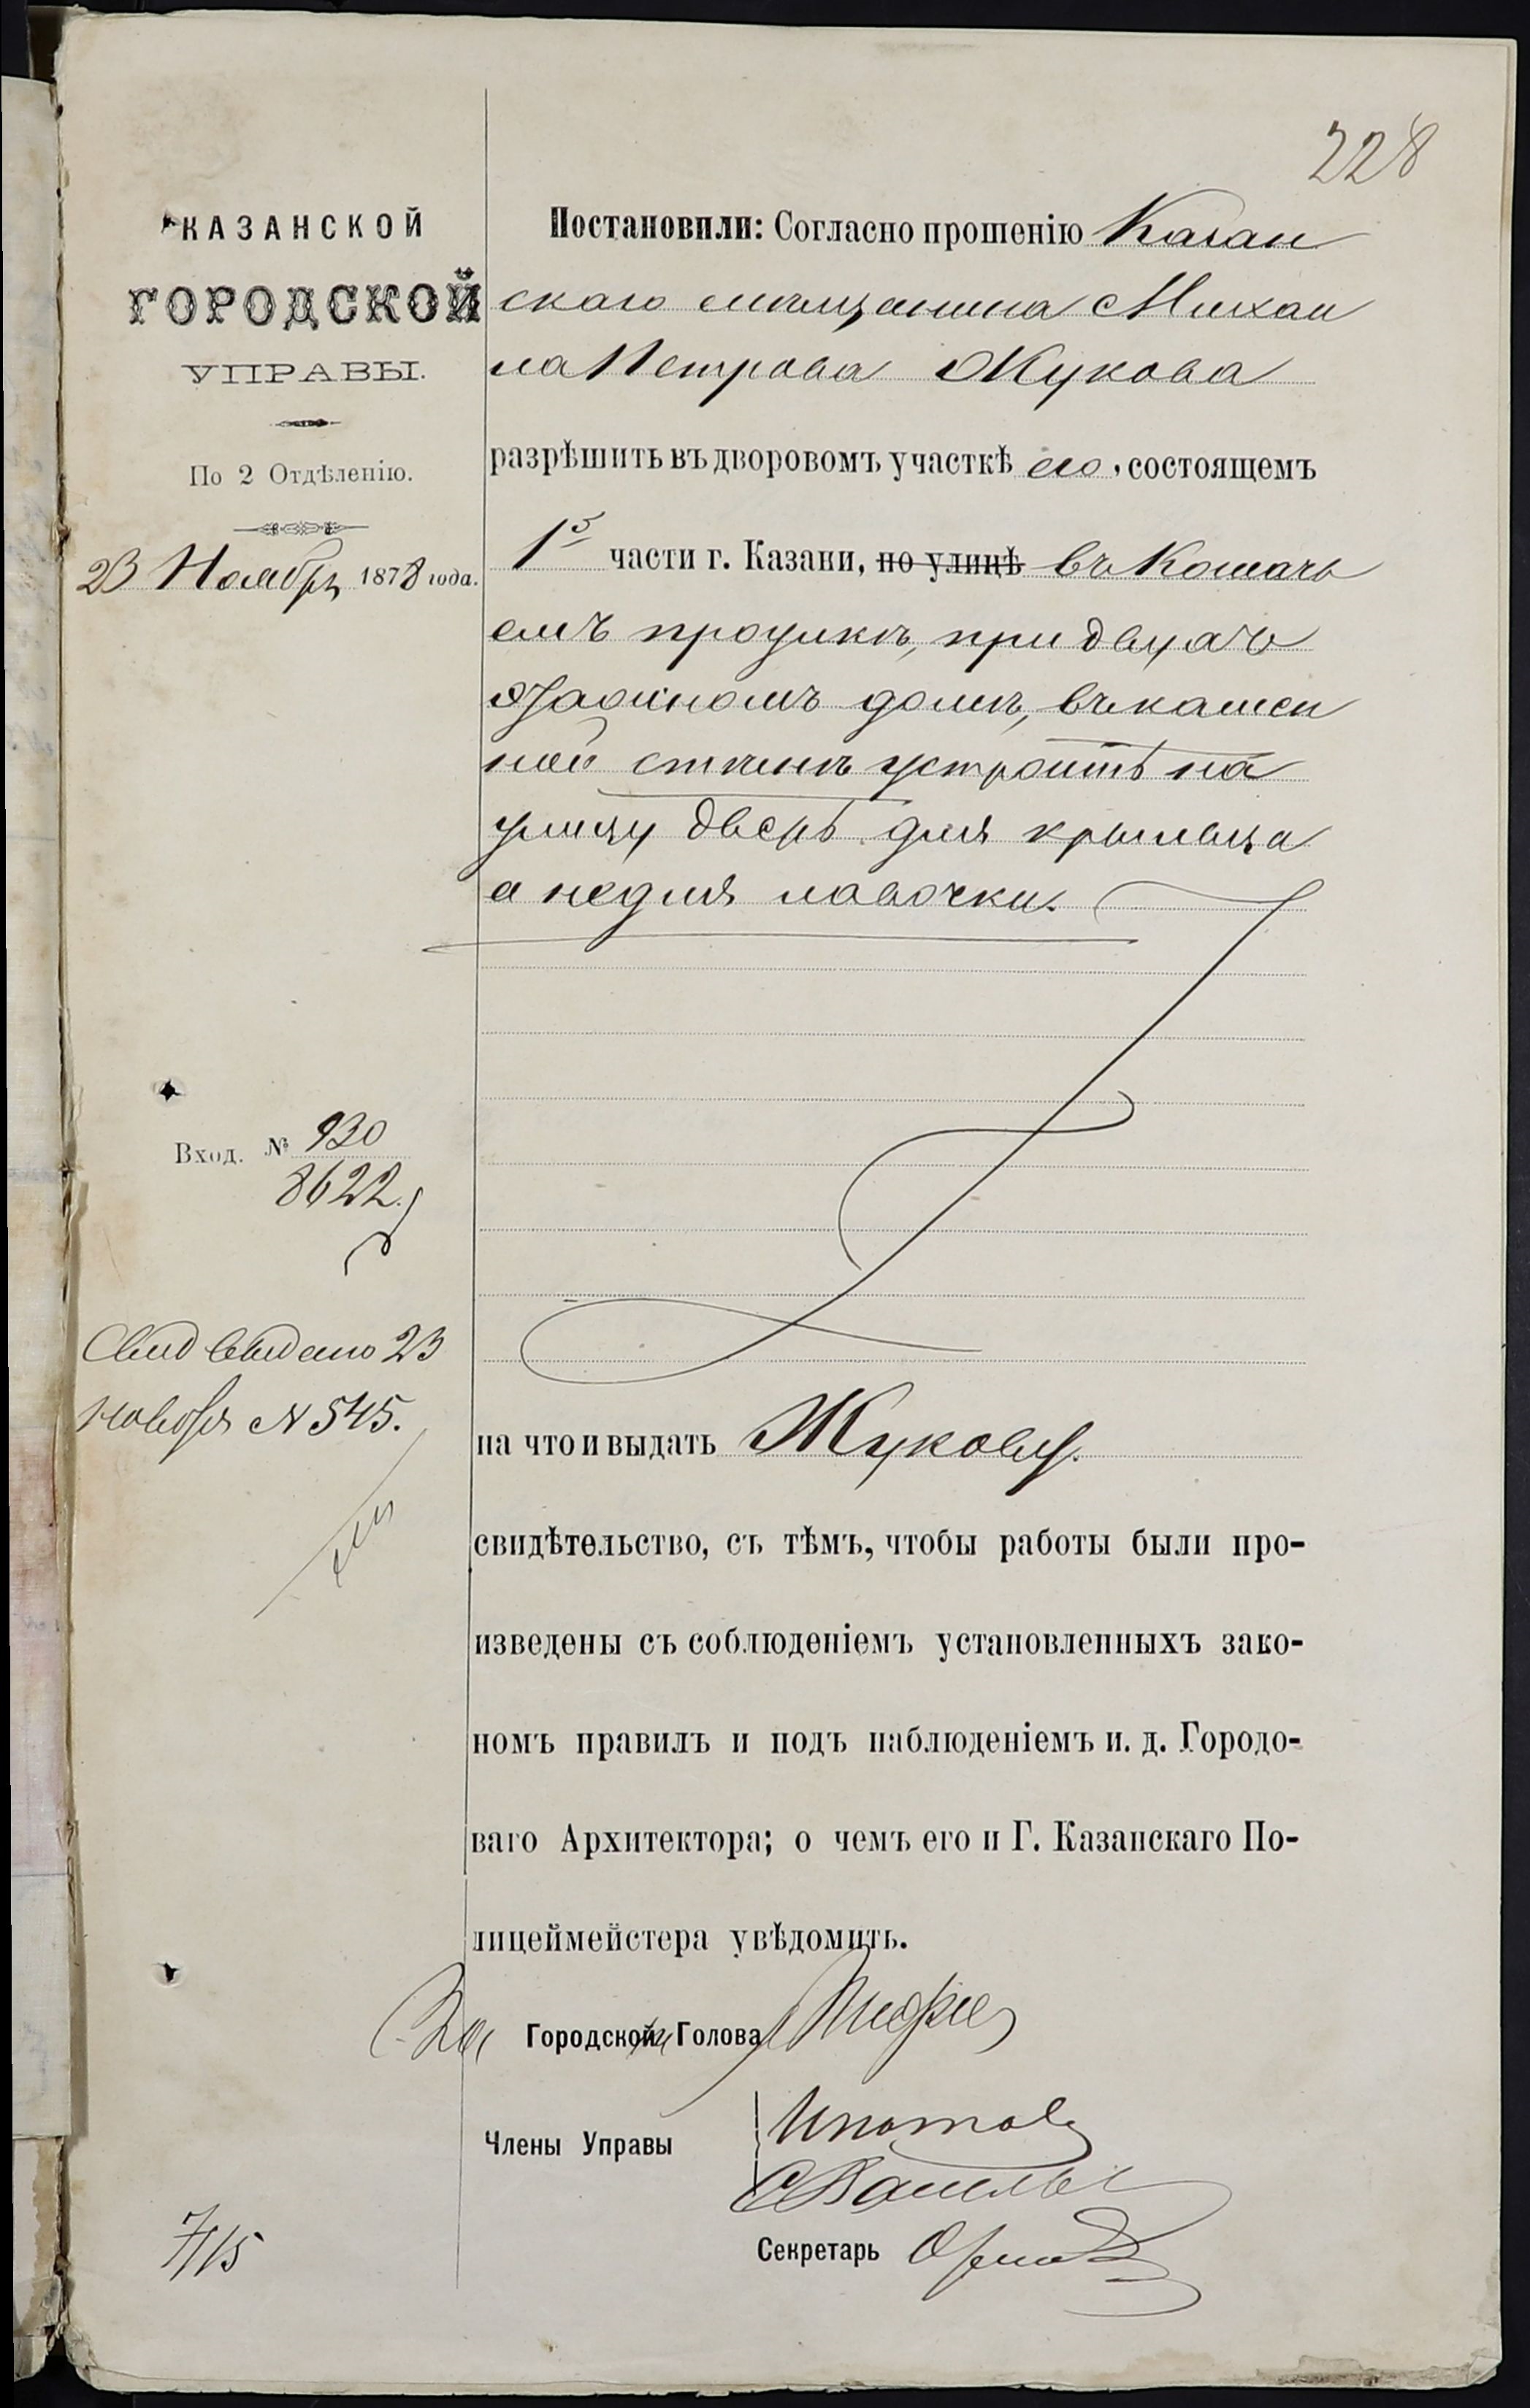 228
КАЗАНСКОЙ
ГОРОДСКОЙ
УПРАВЫ.
По 2 Отдѣленію.
23 Ноября 1878 года.
Вход. № 930
8622
Свид выдано 23
ноября № 545.
7115
Постановили: Согласно прошенію Казан
скаго мѣщанина Михаи
ла Петрова Жукова
разрѣшить въ дворовомъ участкѣ его, состоящемъ
1й части г. Казани, по улицѣ въ Кошачь
емъ проулкѣ, при двухъ
этажномъ домѣ, въ камен
ной стѣнѣ устроить на
улицу дверь для крыльца
а не для лавочки.
на что и выдать Жукову.
свидѣтельство, съ тѣмъ, чтобы работы были про-
изведены съ соблюденіемъ установленныхъ зако-
номъ правилъ и подъ наблюденіемъ и. д. Городо-
ваго Архитектора; о чемъ его и Г. Казанскаго По-
лицеймейстера увѣдомить.
За Городской Голова
Члены Управы Ипатов
Секретарь